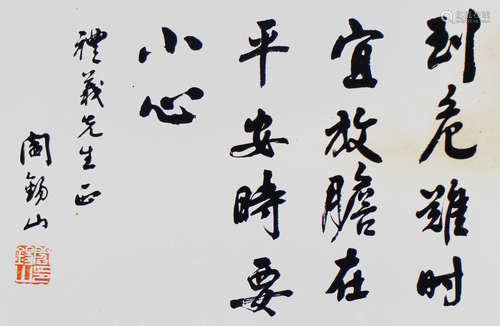 到危難时
宜放膽在
平安時要
小心
禮義先生正
閻錫山